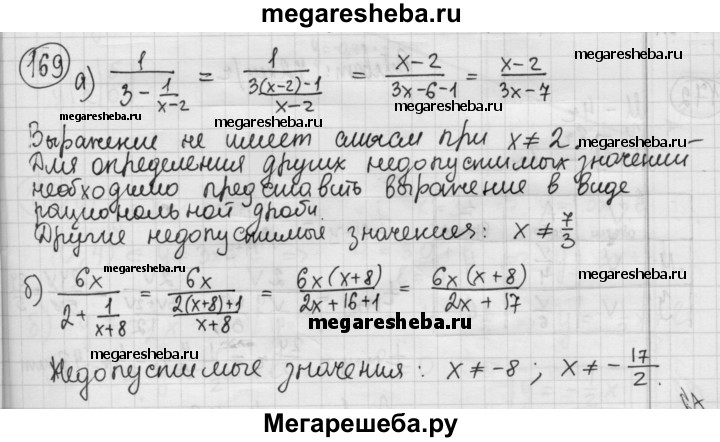 megaresheba.ru
169
а) 1/(3 - 1/(x-2)) = 1/((3(x-2)-1)/(x-2)) = (x-2)/(3x-6-1) = (x-2)/(3x-7)
megaresheba.ru megaresheba.ru megaresheba.ru
megaresheba.ru
Выражение не имеет смысл при x ≠ 2 —
megaresheba.ru
Для определения других недопустимых значений
необходимо представить выражение в виде
рациональной дроби.
Другие недопустимые значения: x ≠ 7/3
megaresheba.ru megaresheba.ru
б) 6x/(2 + 1/(x+8)) = 6x/((2(x+8)+1)/(x+8)) = 6x(x+8)/(2x+16+1) = 6x(x+8)/(2x+17)
megaresheba.ru megaresheba.ru
megaresheba.ru
megaresheba.ru
Недопустимые значения: x ≠ -8; x ≠ -17/2.
Мегарешеба.ру